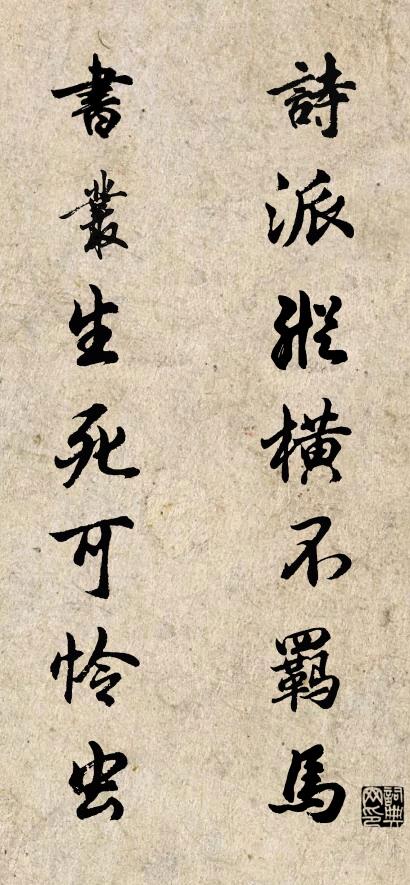 詩派縱橫不羈馬
書叢生死可憐虫
詞典網印